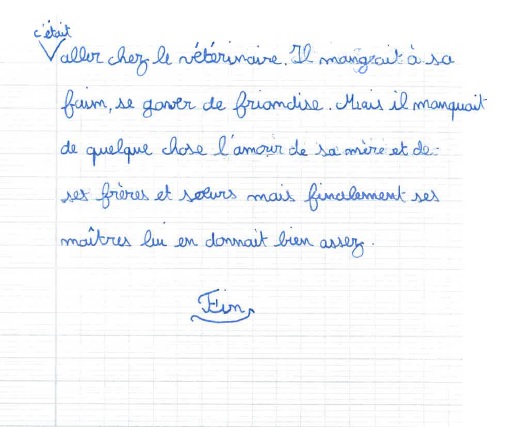 c'était
aller chez le vétérinaire. Il mangeait à sa
faim, se gaver de friandise. Mais il manquait
de quelque chose l'amour de sa mère et de
ses frères et sœurs mais finalement ses
maîtres lui en donnait bien assez.
Fin